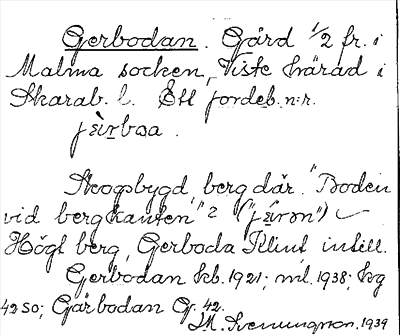 Gerbodan. Gård 1/2 fr. i
Malma socken, Viste härad i
Skarab. l. Ett jordeb. n:r.
jä̀rboa.
Skogsbygd, berg där. "Boden
vid bergkanten"? ("jä́rən")
Högt berg, Gerboda Klint intill.
Gerbodan kb. 1921; mil. 1938; hvg
42 SO; Gärbodan Gr. 42.
M. Svenungson. 1939